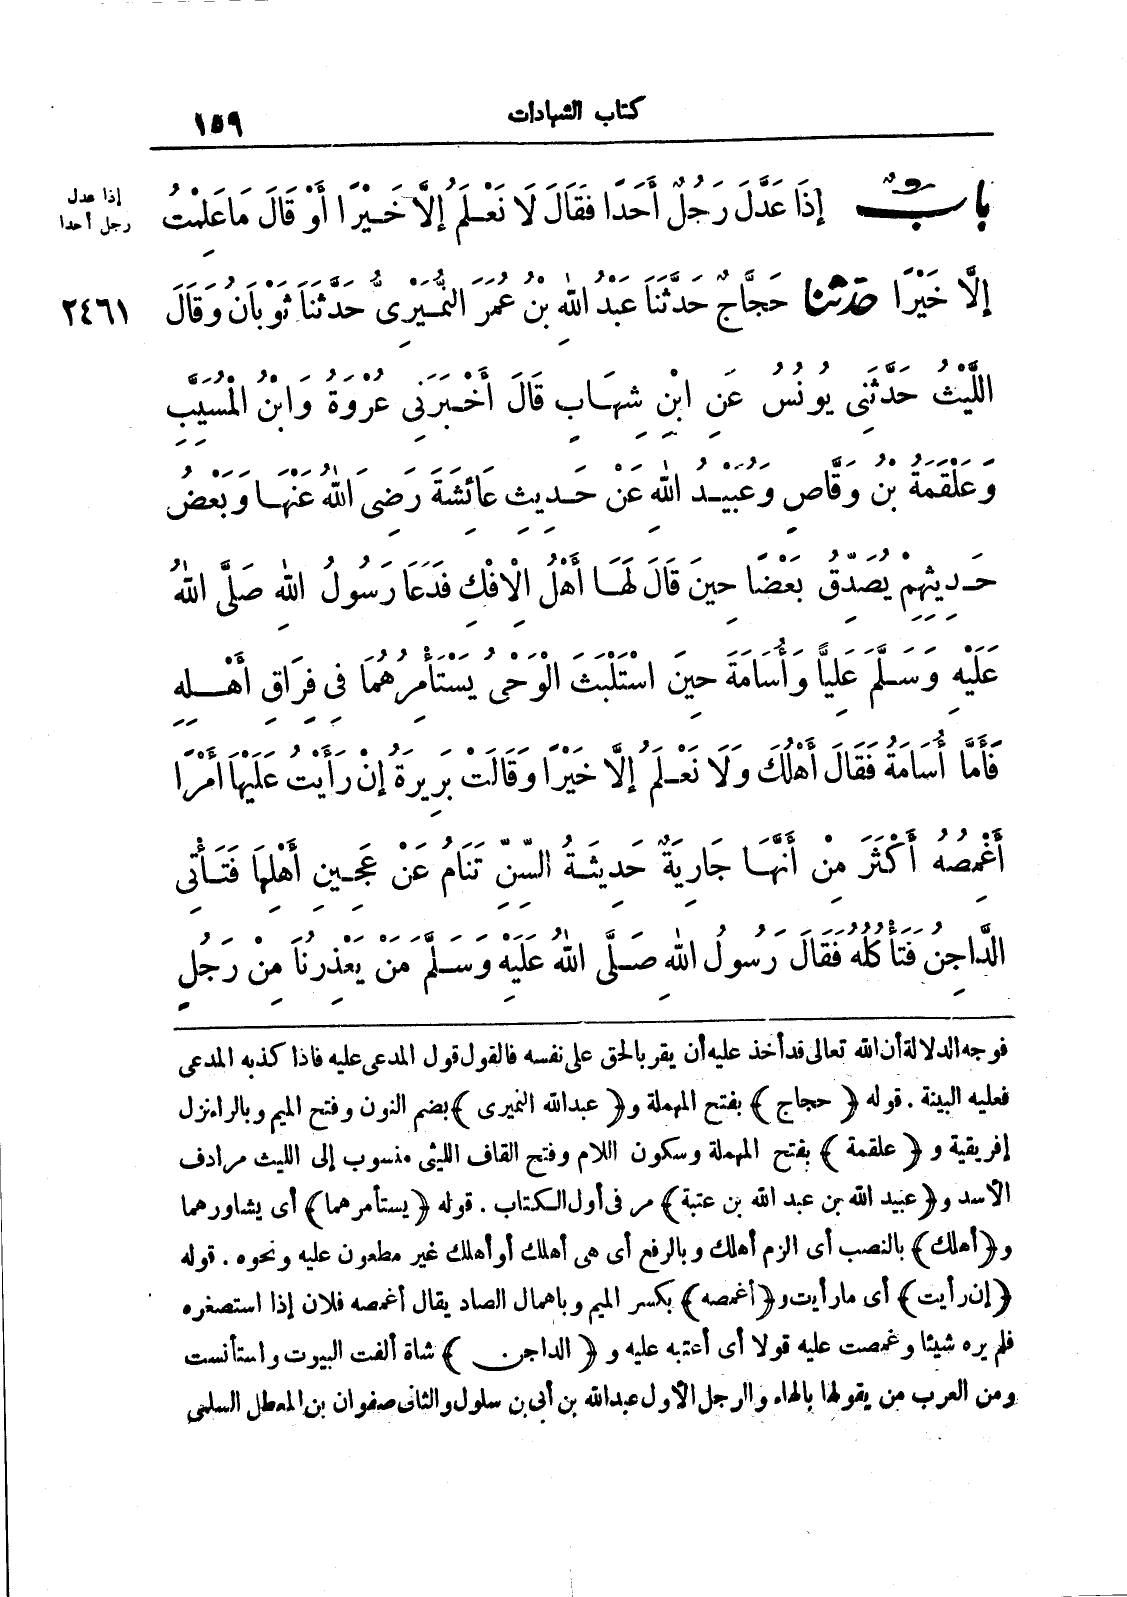 كتاب الشهادات
١٥٩
بابٌ إِذَا عَدَّلَ رَجُلٌ أَحَدًا فَقَالَ لَا نَعْلَمُ إِلَّا خَيْرًا أَوْ قَالَ مَا عَلِمْتُ
إذا عدل
رجل أحدا
إِلَّا خَيْرًا حدثنا حَجَّاجٌ حَدَّثَنَا عَبْدُ اللهِ بْنُ عُمَرَ النُّمَيْرِىُّ حَدَّثَنَا ثَوْبَانُ وَقَالَ
٢٤٦١
اللَّيْثُ حَدَّثَنِى يُونُسُ عَنِ ابْنِ شِهَابٍ قَالَ أَخْبَرَنِى عُرْوَةُ وَابْنُ الْمُسَيَّبِ
وَعَلْقَمَةُ بْنُ وَقَّاصٍ وَعُبَيْدُ اللهِ عَنْ حَدِيثِ عَائِشَةَ رَضِىَ اللهُ عَنْهَا وَبَعْضُ
حَدِيثِهِمْ يُصَدِّقُ بَعْضًا حِينَ قَالَ لَهَا أَهْلُ الْإِفْكِ فَدَعَا رَسُولُ اللهِ صَلَّى اللهُ
عَلَيْهِ وَسَلَّمَ عَلِيًّا وَأُسَامَةَ حِينَ اسْتَلْبَثَ الْوَحْىُ يَسْتَأْمِرُهُمَا فِى فِرَاقِ أَهْلِهِ
فَأَمَّا أُسَامَةُ فَقَالَ أَهْلُكَ وَلَا نَعْلَمُ إِلَّا خَيْرًا وَقَالَتْ بَرِيرَةُ إِنْ رَأَيْتُ عَلَيْهَا أَمْرًا
أَغْمِصُهُ أَكْثَرَ مِنْ أَنَّهَا جَارِيَةٌ حَدِيثَةُ السِّنِّ تَنَامُ عَنْ عَجِينِ أَهْلِهَا فَتَأْتِى
الدَّاجِنُ فَتَأْكُلُهُ فَقَالَ رَسُولُ اللهِ صَلَّى اللهُ عَلَيْهِ وَسَلَّمَ مَنْ يَعْذِرُنَا مِنْ رَجُلٍ
فوجه الدلالة أن الله تعالى قد أخذ عليه أن يقر بالحق على نفسه فالقول قول المدعى عليه فاذا كذبه المدعى
فعليه البينة . قوله ﴿حجاج﴾ بفتح المهملة و﴿عبدالله النميرى﴾ بضم النون وفتح الميم وبالراء نزل
إفريقية و﴿علقمة﴾ بفتح المهملة وسكون اللام وفتح القاف الليثى منسوب إلى الليث مرادف
الأسد و﴿عبيد الله بن عبد الله بن عتبة﴾ مر فى أول الكتاب . قوله ﴿يستأمرهما﴾ أى يشاورهما
و﴿أهلك﴾ بالنصب أى الزم أهلك وبالرفع أى هى أهلك أو أهلك غير مطعون عليه ونحوه . قوله
﴿إن رأيت﴾ أى ما رأيت و﴿أغمصه﴾ بكسر الميم وباهمال الصاد يقال أغمصه فلان إذا استصغره
فلم يره شيئا وغمصت عليه قولا أى أعتبه عليه و﴿الداجن﴾ شاة ألفت البيوت واستأنست
ومن العرب من يقولها بالهاء والرجل الأول عبدالله بن أبى بن سلول والثانى صفوان بن المعطل السلمى